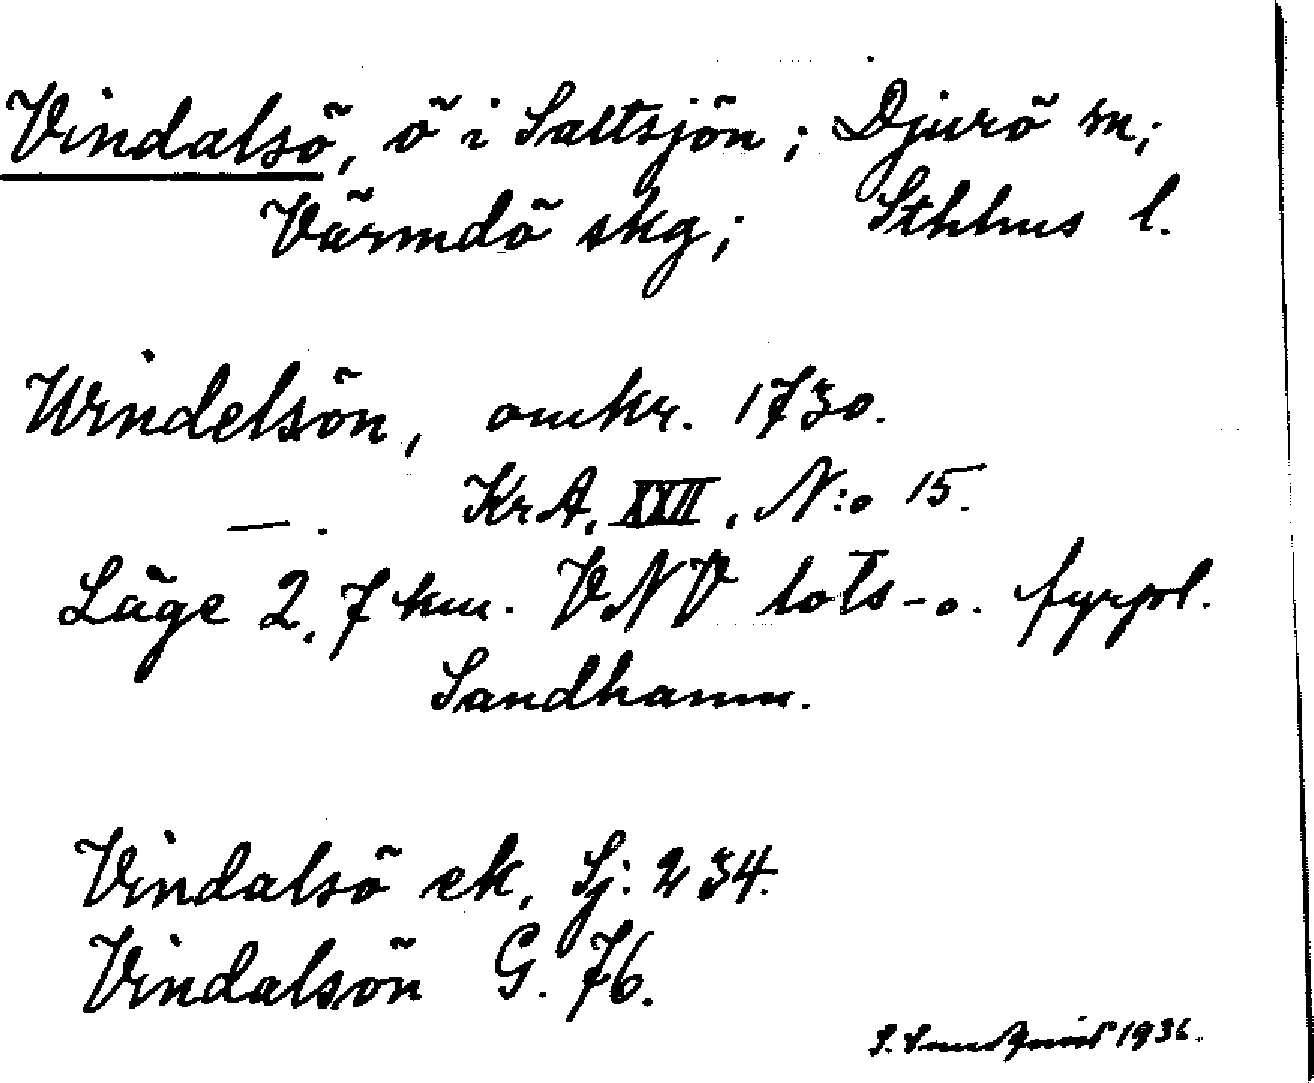 Vindalsö, ö i Saltsjön; Djurö sn;
Värmdö skg; Sthlms l.
Windelsön, omkr. 1730.
— . KrA, XXII, N:o 15.
Läge 2,7 km. VNV lots- o. fyrpl.
Sandhamn.
Vindalsö ek, Sj: 234.
Vindalsön G. 76.
1936.